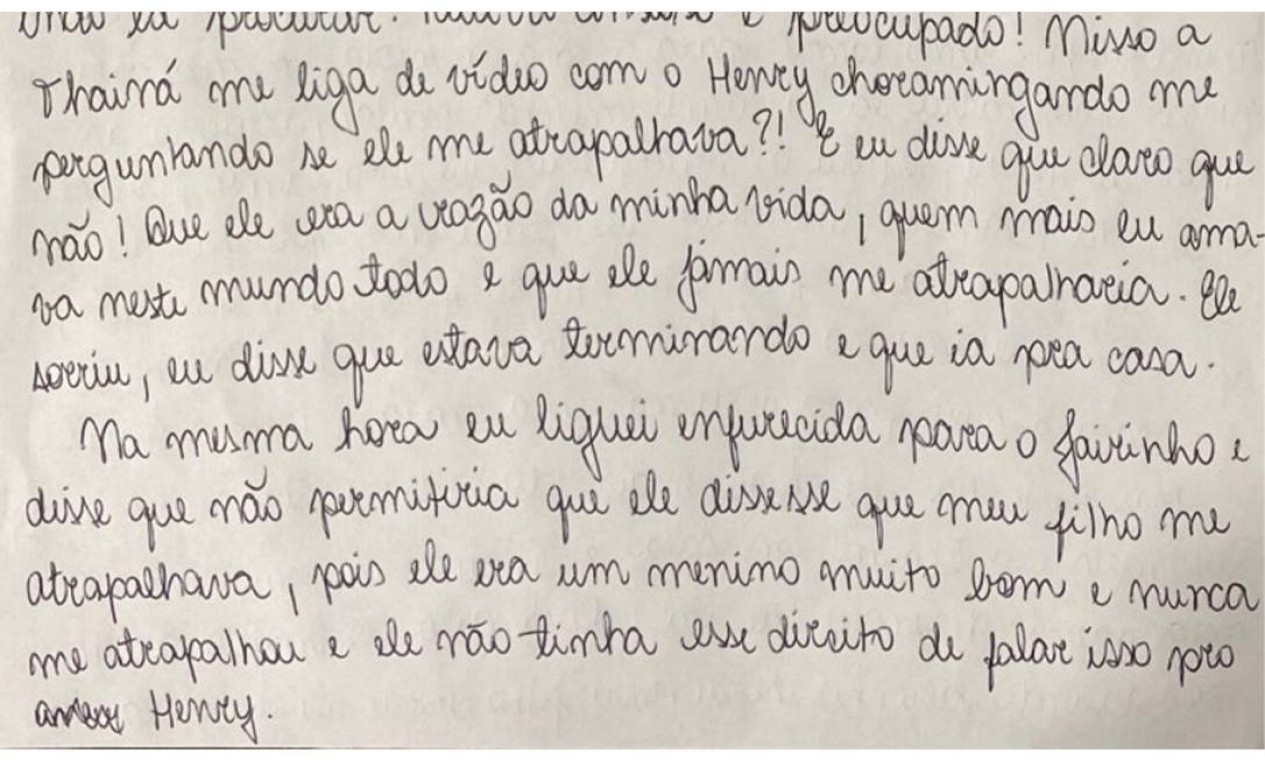 preocupado! Nisso a
Thainá me liga de vídeo com o Henry choramingando me
perguntando se ele me atrapalhava?! E eu disse que claro que
não! Que ele era a razão da minha vida, quem mais eu ama-
va neste mundo todo e que ele jamais me atrapalharia. Ele
sorriu, eu disse que estava terminando e que ia pra casa.
Na mesma hora eu liguei enfurecida para o Jairinho e
disse que não permitiria que ele dissesse que meu filho me
atrapalhava, pois ele era um menino muito bom e nunca
me atrapalhou e ele não tinha esse direito de falar isso pro
Henry.